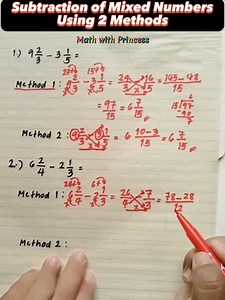 Subtraction of Mixed Numbers
Using 2 Methods
Math with Princess
1.) 9 2/3 - 3 1/5 =
27+2 15+1
Method 1 : 9 2/3 - 3 1/5 = 29/3 - 16/5 = 145-48/15
= 97/15 = 6 7/15
6
15√97
90
7
Method 2 : 9 2/3 - 3 1/5 = 6 10-3/15 = 6 7/15
2.) 6 2/4 - 2 1/3 =
24+2 6+1
Method 1 : 6 2/4 - 2 1/3 = 26/4 - 7/3 = 78-28/12
Method 2 :